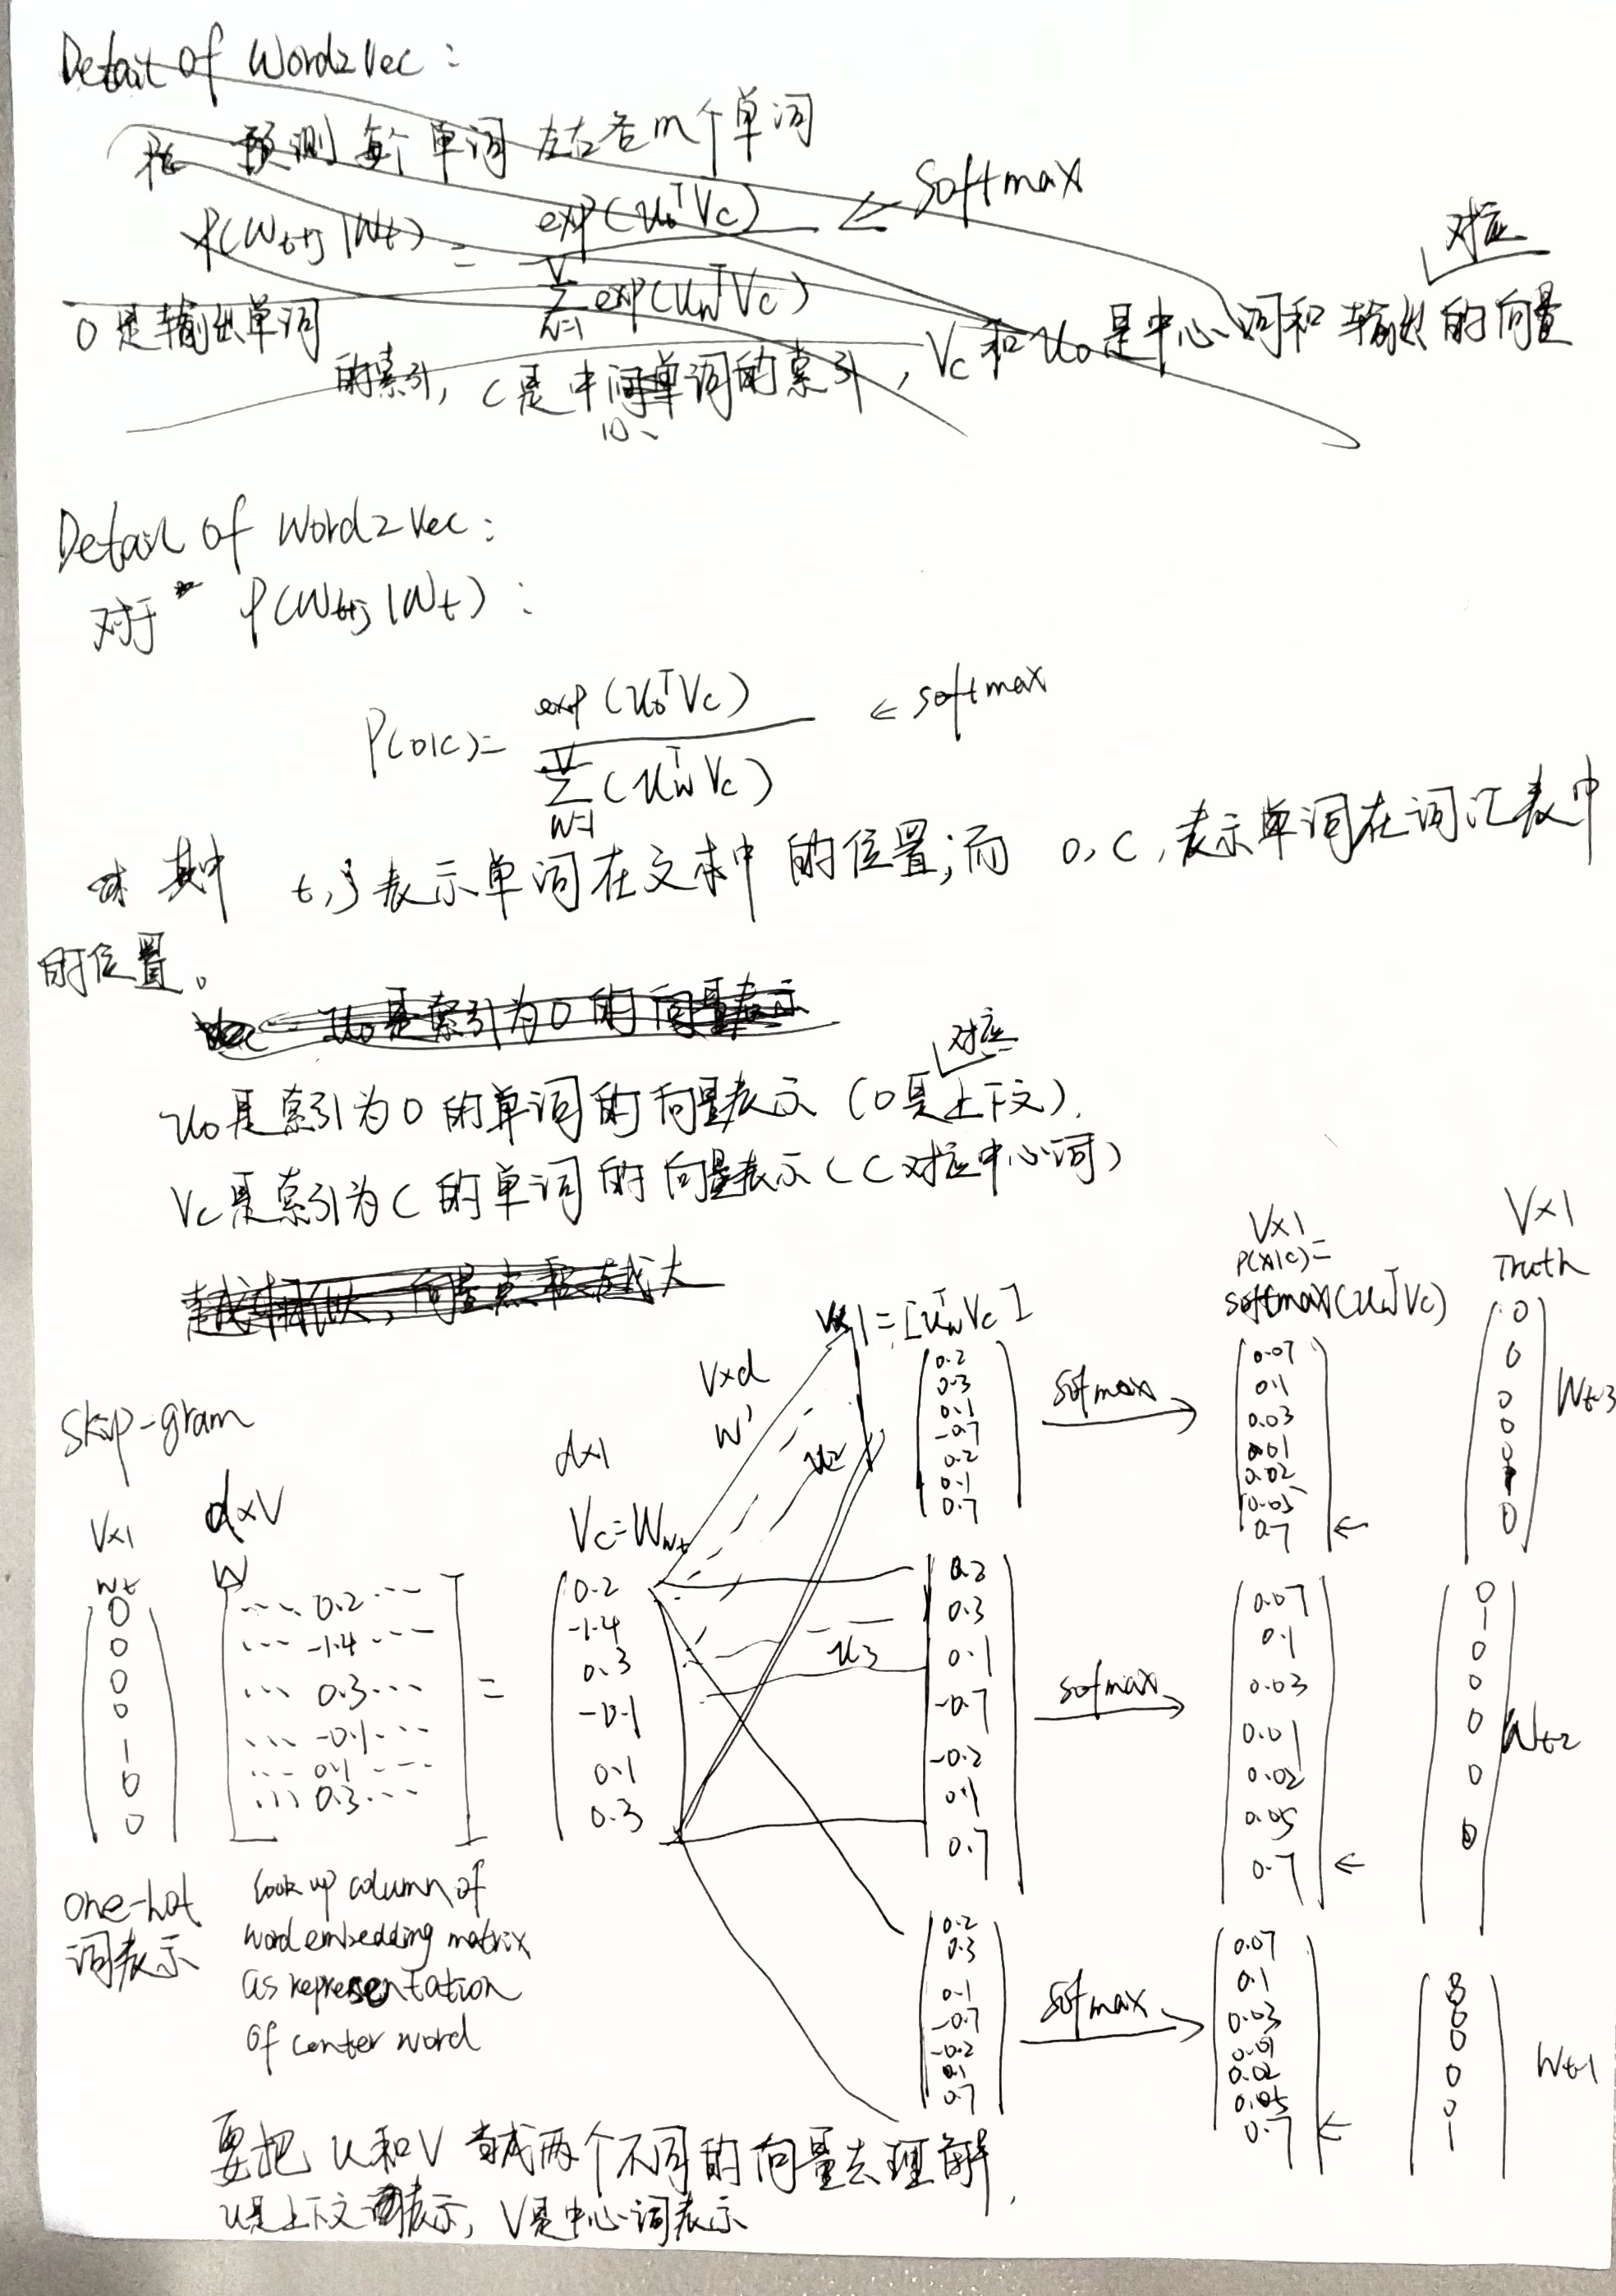 Detail of Word2Vec:
预测每个单词左右各m个单词
P(Wt+j|Wt) = exp(uoᵀVc) / Σ(w=1..V) exp(uwᵀVc) ← Softmax
对应
O是输出单词的索引, C是中间单词的索引, Vc和uo是中心词和输出的向量
Detail of Word2Vec:
对于 P(Wt+j|Wt):
P(o|c)= exp(uoᵀVc) / Σ(w=1..V) (uwᵀVc) ← softmax
其中 t,j表示单词在文本中的位置;而 o,c,表示单词在词汇表中
的位置。
uo是索引为o的向量表示
对应
uo是索引为o的单词的向量表示(o是上下文).
Vc是索引为C的单词的向量表示(C对应中心词)
越相似,向量点积越大
Skip-gram
V×1
Wt
0
0
0
0
1
0
0
one-hot
词表示
d×V
W
... 0.2 ...
... -1.4 ...
... 0.3 ...
... -0.1 ...
... 0.1 ...
... 0.3 ...
look up column of
word embedding matrix
as representation
of center word
=
d×1
Vc=Wwt
0.2
-1.4
0.3
-0.1
0.1
0.3
V×d
W'
u2
u3
V×1=[uwᵀVc]
0.2
0.3
0.1
-0.7
0.2
0.1
0.7
sofmax
V×1
P(x|c)=
softmax(uwᵀVc)
0.07
0.1
0.03
0.01
0.02
0.05
0.7
←
V×1
Truth
0
0
0
0
0
1
0
Wt-3
0.2
0.3
0.1
-0.7
-0.2
0.1
0.7
sofmax
0.07
0.1
0.03
0.01
0.02
0.05
0.7
←
0
1
0
0
0
0
0
Wt-2
0.2
0.3
0.1
-0.7
-0.2
0.1
0.7
sofmax
0.07
0.1
0.03
0.01
0.02
0.05
0.7
←
0
0
0
0
1
Wt-1
要把 u和V 当成两个不同的向量去理解.
u是上下文词表示, V是中心词表示